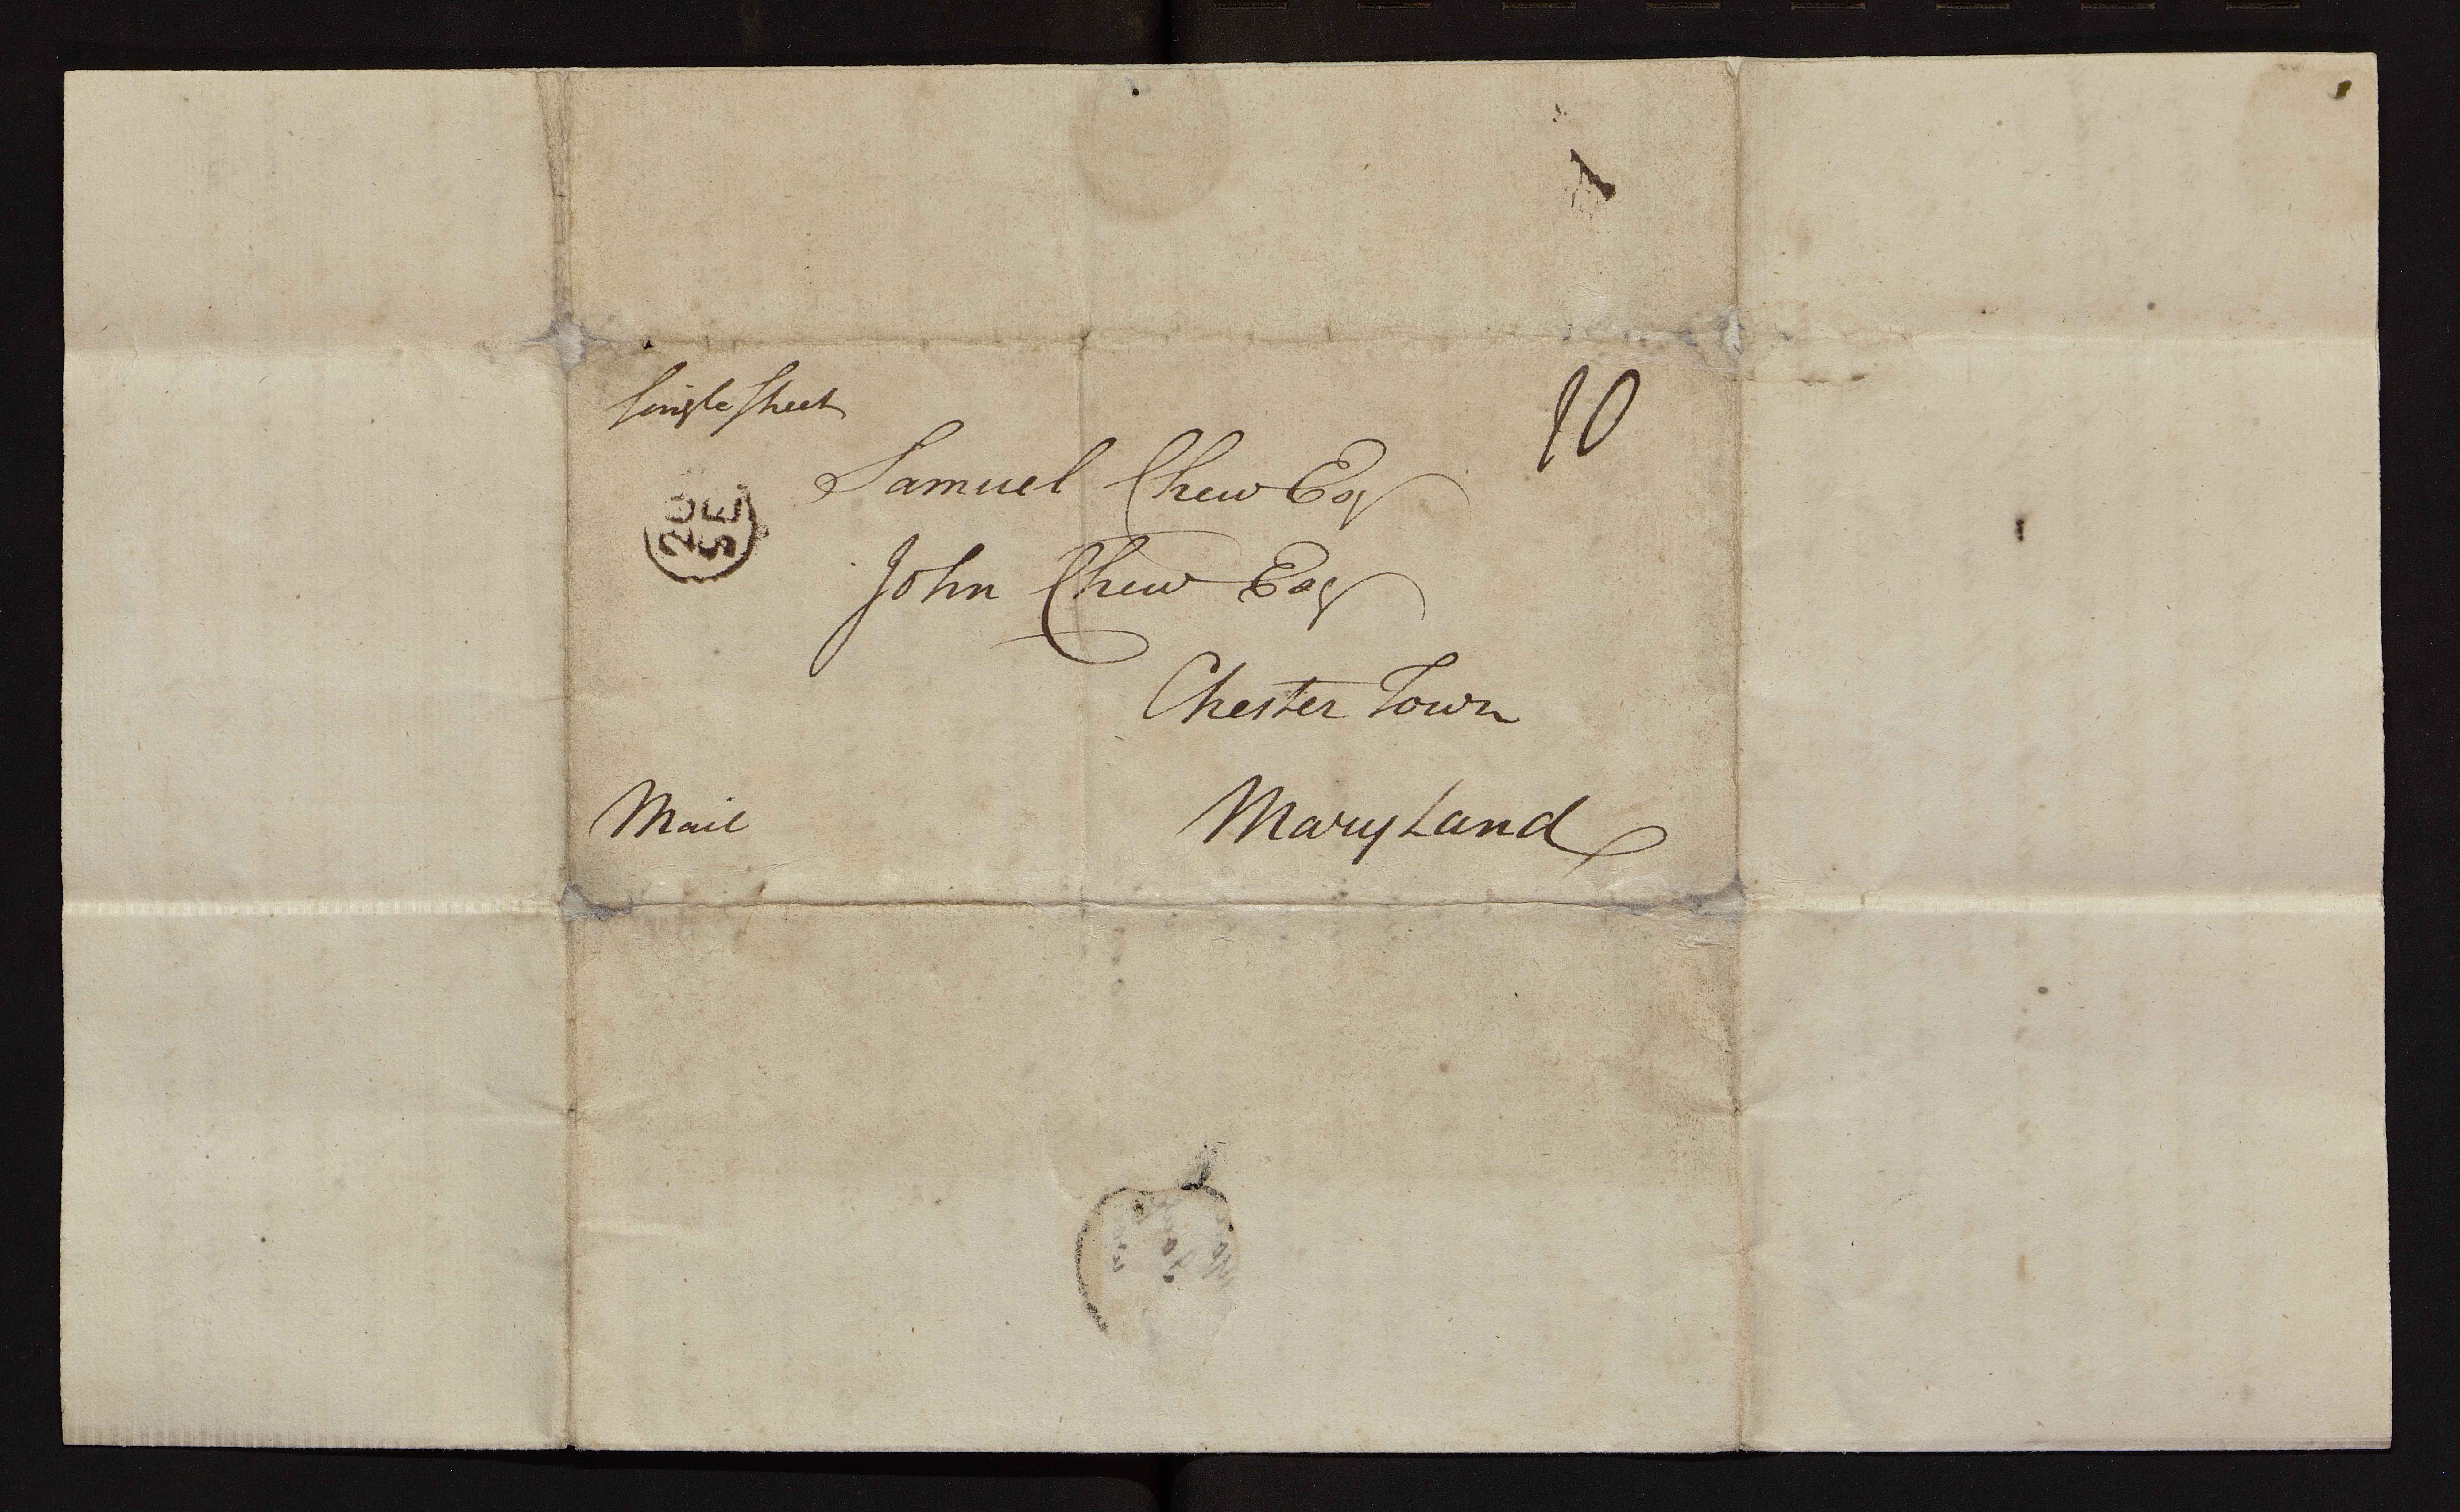 Single Sheet
10
Samuel Chew Esq
20 SE
John Chew Esq
Chester Town
Mail
MaryLand